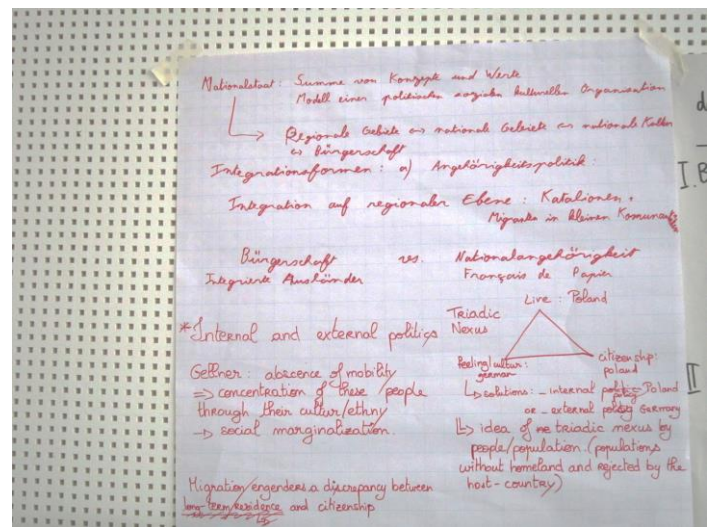 Nationalstaat: Summe von Konzepte und Werte
Modell einer politischen sozialen kulturellen Organisation
Regionale Gebiete ⇔ nationale Gebiete ⇔ nationale
⇔ Bürgerschaft
Integrationsformen: a) Angehörigkeitspolitik:
Integration auf regionaler Ebene: Katalionen,
Migranten in kleinen
Bürgerschaft vs. Nationalangehörigkeit
Integrierte Ausländer Français de Papier
*Internal and external politics
Gellner: abscence of mobility
⇒ concentration of these people
through their cultur/ethny
→ social marginalization.
Migration/engenders a discrepancy between
long-term/residence and citizenship
Triadic
Nexus
Live: Poland
Feeling/cultur:
german
citizenship:
poland
solutions: - internal Poland
or - external Germany
idea of triadic nexus by
people/population. (populations
without homeland and rejected by the
host-country)
d
I.B
II